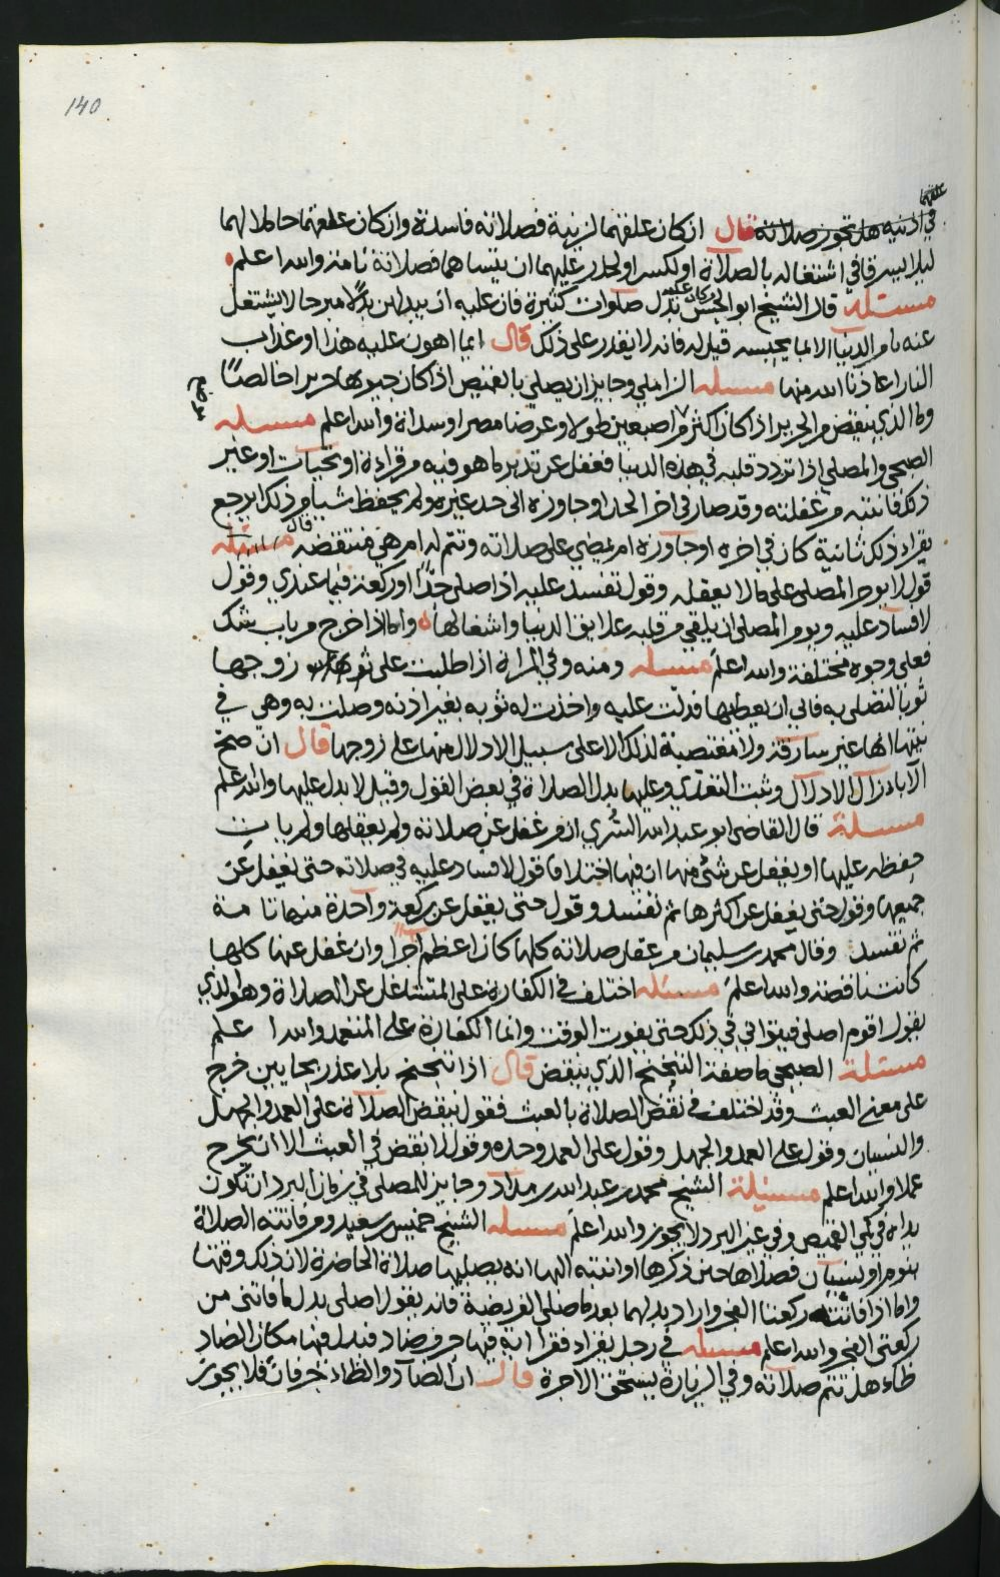 140
علقهما
في اذنيه هل تجوز صلاته قال ان كان علقهما لزينة فصلاته فاسدة وان كان علقهما حاملا لهما
ليلا يسرقا في اشتغاله بالصلاة او لكسر او لحذر عليهما ان ينساهما فصلاته تامة والله اعلم
مسئلة قال الشيخ ابو الحسن وكان عليه بدل صلوات كثيرة فان عليه ان يبدلهن بدلا من حال لا يشتغل
عنه بامر الدنيا الا بما يحبسه قيل له فانه لا يقدر على ذلك قال ايما اهون عليه هذا او عذاب
النار اعاذنا الله منها مسئله الزاملي وجايز ان يصلي بالقميص اذا كان جيبها حريرا خالصا
وما الذي ينقض من الحرير اذا كان اكثر من اصبعين طولا وعرضا مصرا وسداة والله اعلم مسئله
الصبحي والمصلي اذا تردد قلبه في هذه الدنيا فغفل عن تدبر ما هو فيه من قراءة او تحيات او غير
ذلك فانتبه من غفلته وقد صار في اخر الحد او جاوزه الى حد غيره ولم يحفظ شيا من ذلك ايرجع
يقرا ذلك ثانية كان في اخره او جاوزه ام يمضي على صلاته وتتم له ام هي منتقضه قال مسئله
قول لا يوجر المصلي على ما لا يعقله وقول تفسد عليه اذا صلى حدا او ركعة فيما عندي وقول
لا فساد عليه ويومر المصلي ان يلقي من قلبه علايق الدنيا واشغالها واما اذا خرج من باب شك
فعلى وجوه مختلفة والله اعلم مسئله ومنه وفي المراة اذا طلبت على زوجها
ثوبا لتصلي به فابى ان يعطيها فدلت عليه واخذت له ثوبه بغير اذنه وصلت به وهي في
نيتها انها غير سارقة ولا مغتصبة لذلك الا على سبيل الادلال منها على زوجها قال ان صح
الاباء زال الادلال وثبت التعدي وعليها بدل الصلاة في بعض القول وقيل لا بدل عليها والله اعلم
مسئلة قال القاضي ابو عبد الله السري ان من غفل عن صلاته ولم يعقلها ولم يات
حفظه عليها او يغفل عن شئ منها ان فيها اختلافا قول لا فساد عليه في صلاته حتى يغفل عن
جميعها وقول حتى يغفل عن اكثرها ثم تفسد وقول حتى يغفل عن ركعة واحدة منها تامة
ثم تفسد وقال محمد بن سليمان من عقل صلاته كلها كان اعظم اجرا وان غفل عنها كلها
كانت ناقصة والله اعلم مسئله اختلف في الكفارة على المتشاغل عن الصلاة وهو الذي
يقول اقوم اصلي فيتوانى في ذلك حتى يفوت الوقت وانما الكفارة على المتعمد والله اعلم
مسئلة الصبحي ما صفة التنحنح الذي ينقض قال اذا تنحنح بلا عذر بحايين خرج
على معنى العبث وقد اختلف في نقض الصلاة بالعبث فقول ينقض الصلاة على العمد والجهل
والنسيان وقول على العمد والجهل وقول على العمد وحده وقول لا نقض في العبث الا ان يخرج
عملا والله اعلم مسئيلة الشيخ محمد بن عبد الله بن مداد وجايز للمصلي في زمان البرد ان تكون
يداه في كمي القميص وفي غير البرد لا يجوز والله اعلم مسئله الشيخ خميس بن سعيد ومن فاتته الصلاة
بنوم او نسيان فصلاها حين ذكرها او انتبه اليها انه يصليها صلاة الحاضرة لان ذلك وقتها
واما اذا فاتته ركعتا الفجر واراد بدلهما بعد ما صلى الفريضة فانه يقول اصلي بدل ما فاتني من
ركعتي الفجر والله اعلم مسئله في رجل يقرا فقرا اية فيها حرف ضاد فبدل فيها مكان الضاد
ظاء هل تتم صلاته وفي الزيارة يستحق الاجرة قال ان الضاد والظاء حرفان فلا يجوز